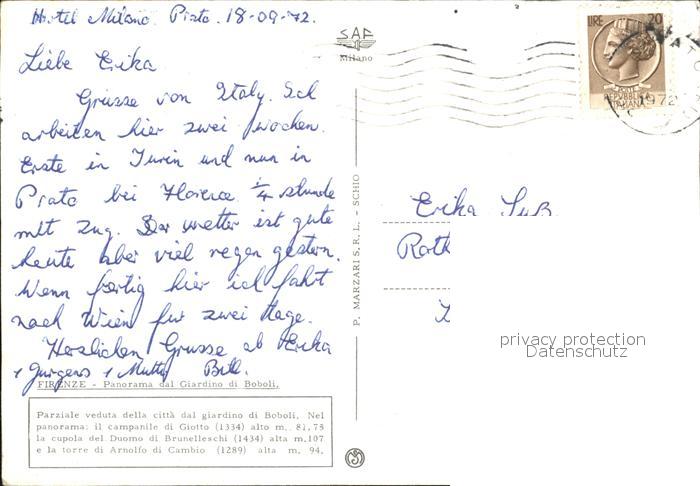 Hotel Milano. Prato. 18-09-72.
Liebe Erika
Grüsse von Italy. Ich
arbeiten hier zwei wochen.
Erste in Turin und nun in
Prato bei Florence 1/4 stunde
mit Zug. Der wetter ist gute
heute aber viel regen gestern.
Wenn fertig hier ich fahrt
nach Wien fur zwei tage.
Herzlichen Grusse ab Erika
+ Jurgens + Mutti Bill.
FIRENZE - Panorama dal Giardino di Boboli.
Parziale veduta della città dal giardino di Boboli. Nel
panorama: il campanile di Giotto (1334) alto m. 81,75
la cupola del Duomo di Brunelleschi (1434) alta m. 107
e la torre di Arnolfo di Cambio (1289) alta m. 94.
SAF
Milano
P. MARZARI S.R.L. - SCHIO
LIRE 20
REPUBBLICA
ITALIANA
1972
Erika
Roth
privacy protection
Datenschutz